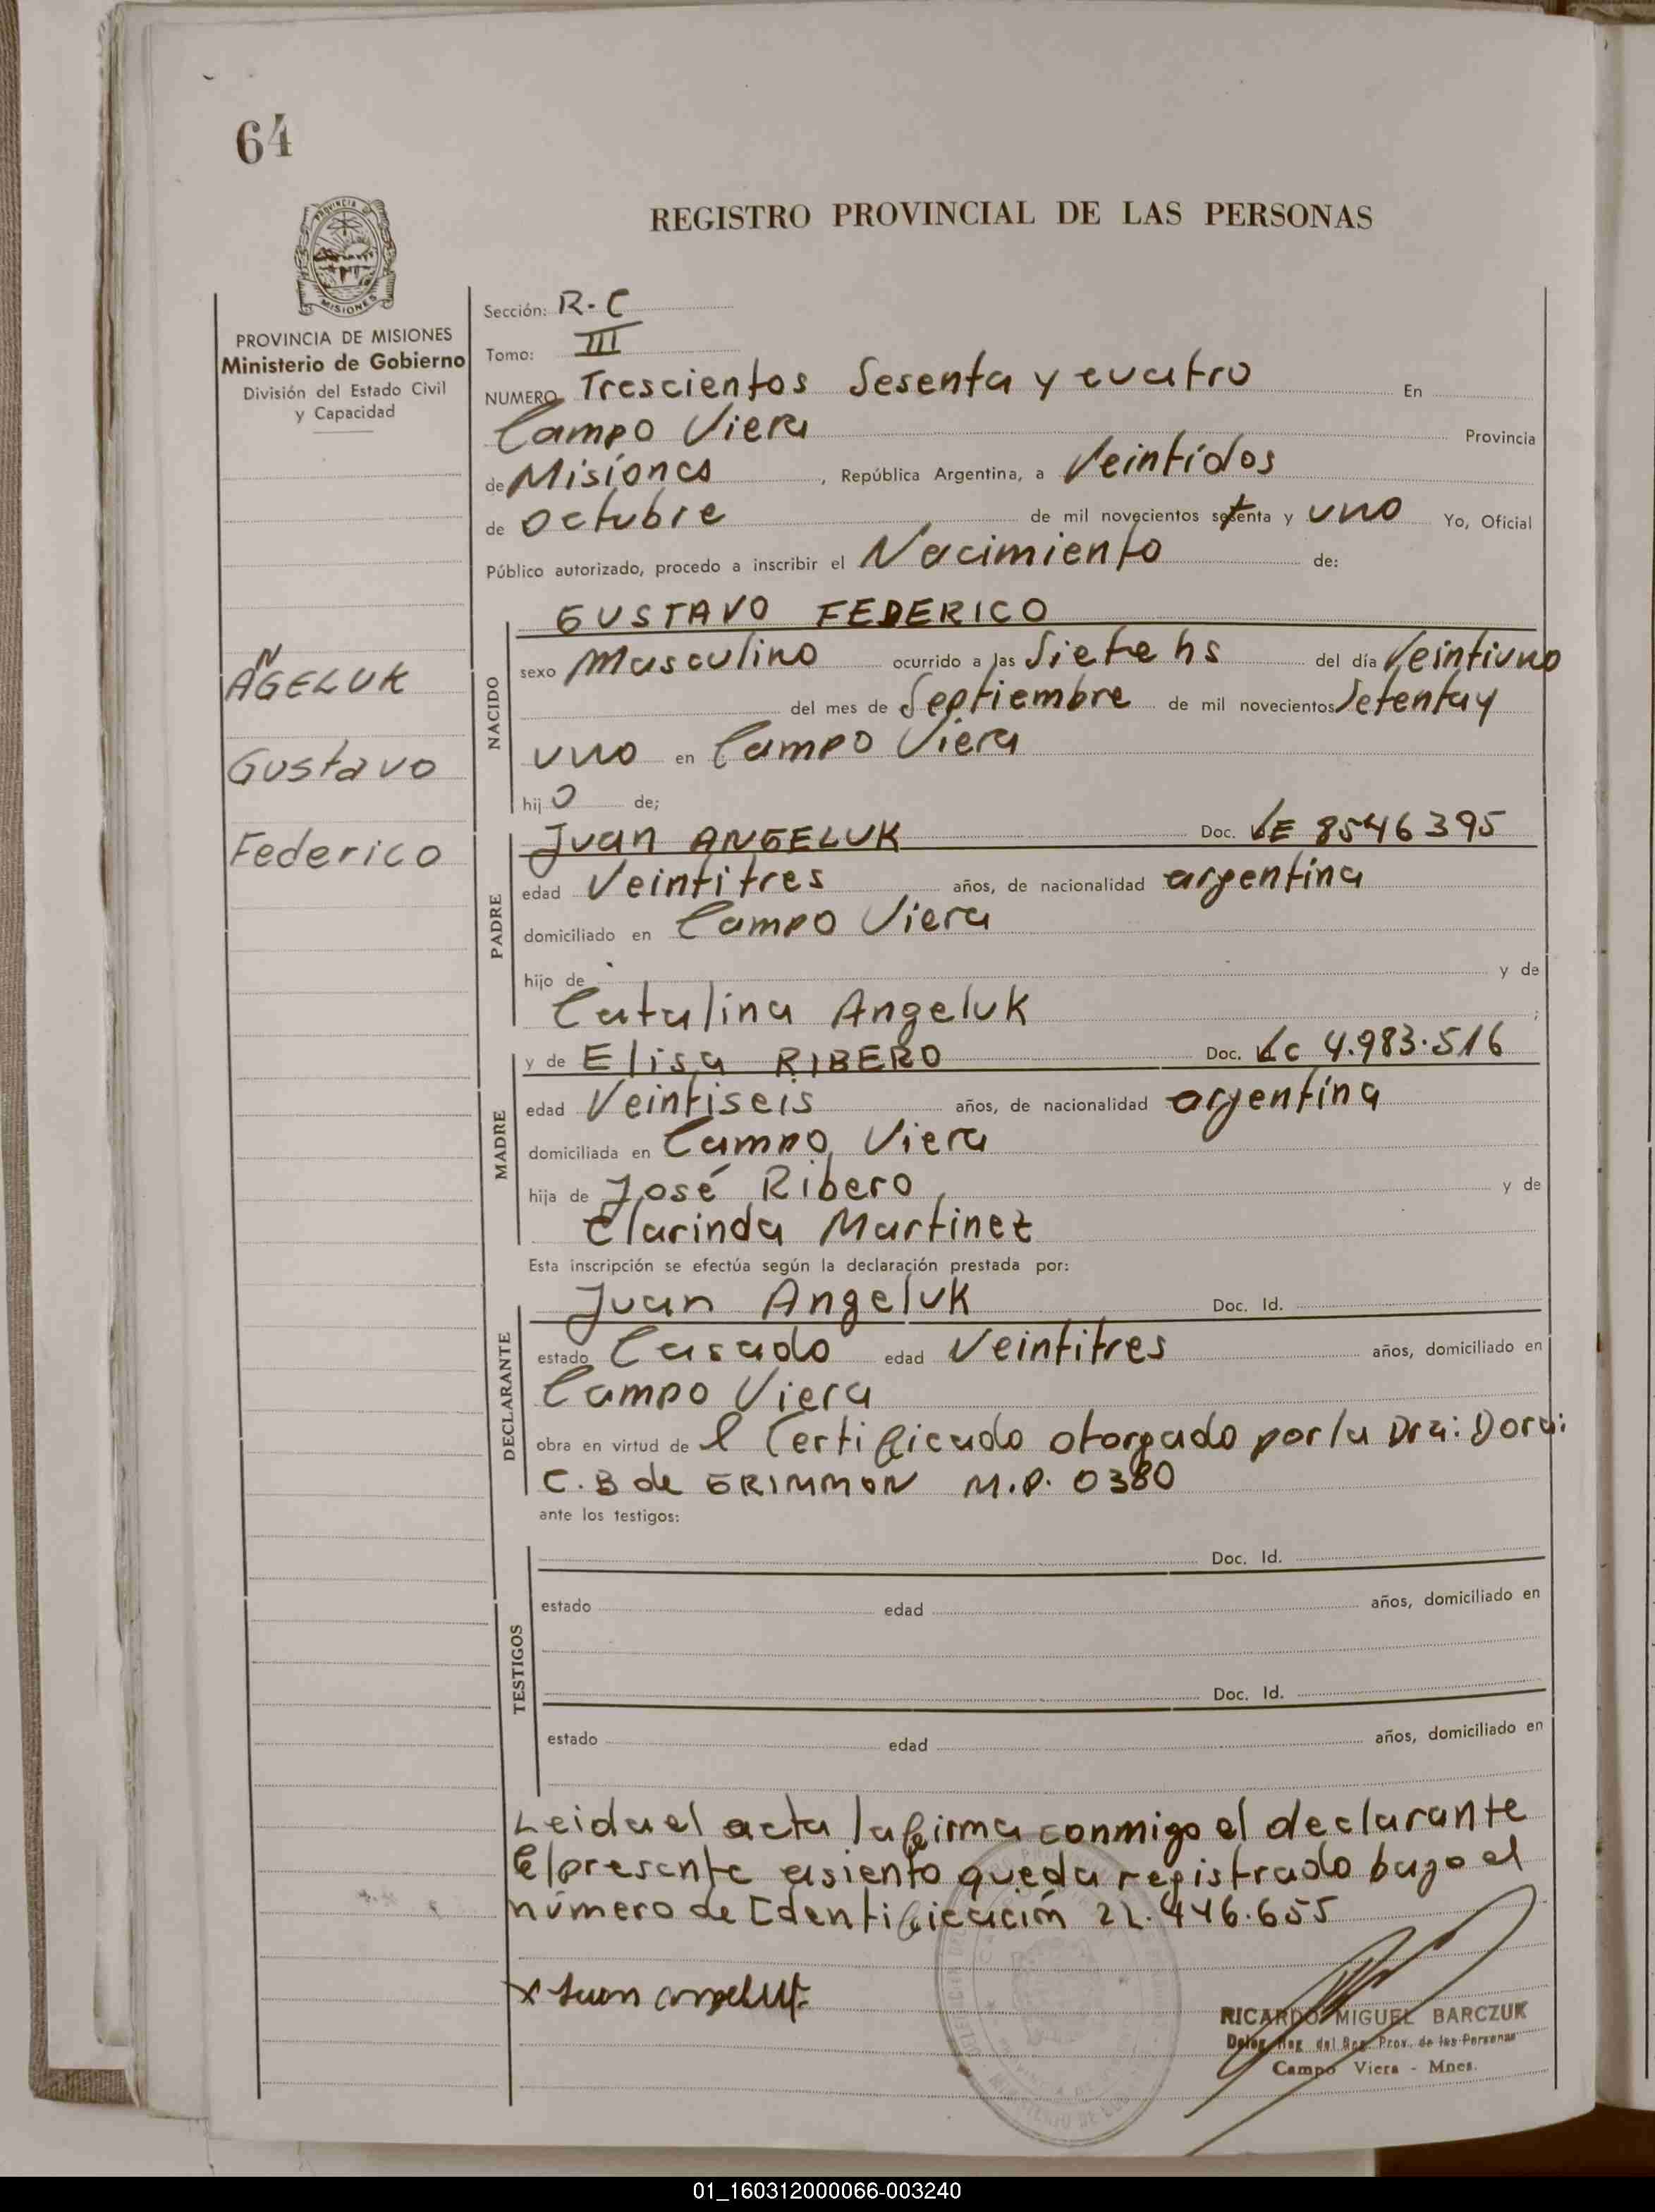 64
REGISTRO PROVINCIAL DE LAS PERSONAS
PROVINCIA DE MISIONES
Ministerio de Gobierno
División del Estado Civil
y Capacidad
ANGELUK
Gustavo
Federico
Sección: R-C
Tomo: III
NUMERO Trescientos Sesenta y cuatro En
Campo Viera Provincia
de Misiones, República Argentina, a Veintidos
de octubre de mil novecientos setenta y uno Yo, Oficial
Público autorizado, procedo a inscribir el Nacimiento de:
NACIDO
GUSTAVO FEDERICO
sexo Masculino ocurrido a las Siete hs del día Veintiuno
del mes de Septiembre de mil novecientos Setenta y
uno en Campo Viera
hijo de;
PADRE
Juan ANGELUK Doc. LE 8546395
edad Veintitres años, de nacionalidad argentina
domiciliado en Campo Viera
hijo de y de
Catalina Angeluk ;
MADRE
y de Elisa RIBERO Doc. LC 4.983.516
edad Veintiseis años, de nacionalidad argentina
domiciliada en Campo Viera
hija de José Ribero y de
Clarinda Martinez
Esta inscripción se efectúa según la declaración prestada por:
DECLARANTE
Juan Angeluk Doc. Id.
estado Casado edad Veintitres años, domiciliado en
Campo Viera
obra en virtud de l Certificado otorgado por la Dra: Dora:
C.B de GRIMMON M.P. 0380
ante los testigos:
TESTIGOS
Doc. Id.
estado edad años, domiciliado en
Doc. Id.
estado edad años, domiciliado en
Leida el acta la firma conmigo el declarante
El presente asiento queda registrado bajo el
número de Identificación 22.446.655
x Juan angeluk
RICARDO MIGUEL BARCZUK
Deleg. Reg. del Reg. Prov. de las Personas
Campo Viera - Mnes.
01_160312000066-003240